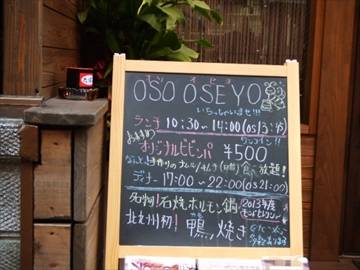 OSO OSEYO
いらっしゃいませ!!!
ランチ 10:30~14:00(OS13:45)
おすすめ ワンコイン!!
オリジナルビビンバ ¥500
手作りのナムル/キムチ 食べ放題!
ディナー 17:00~22:00(OS21:00)
名物!石焼ホルモン鍋
2013年度
北九州初!鴨焼き